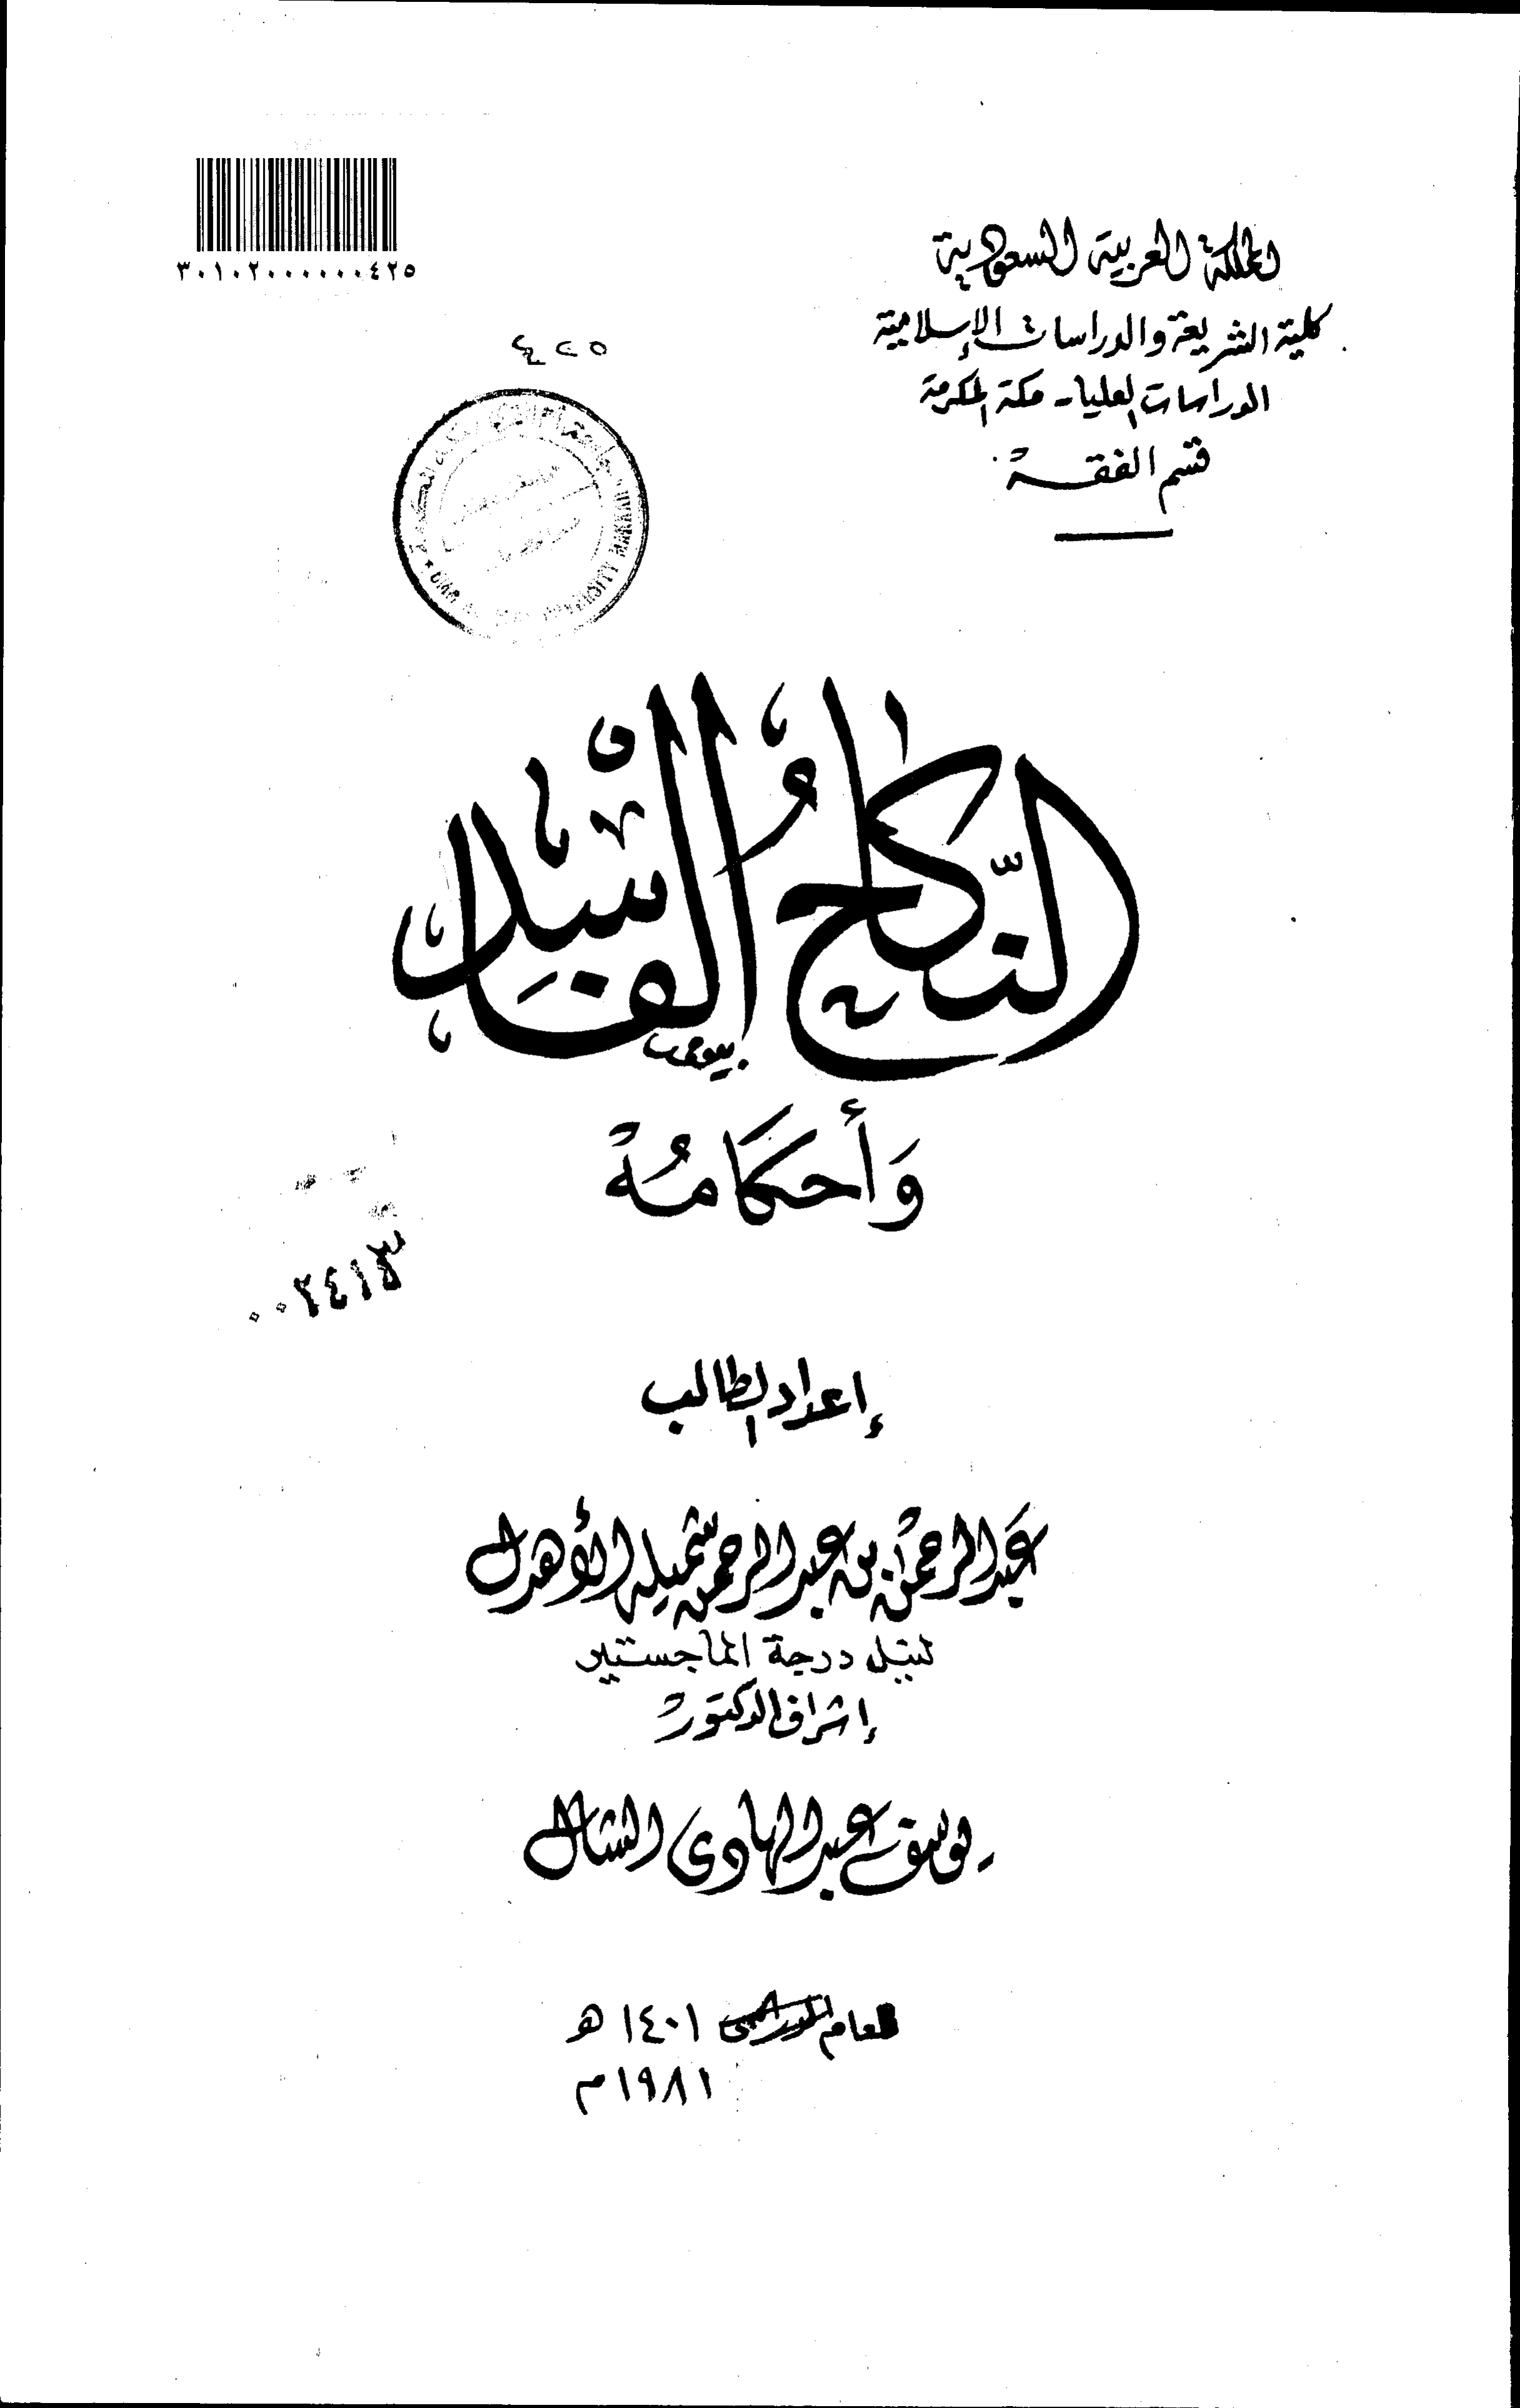 المملكة العربية السعودية
كلية الشريعة والدراسات الإسلامية
الدراسات العليا - مكة المكرمة
قسم الفقه
٣٠١٠٢٠٠٠٠٠٠٤٢٥
٤٢٥
النِّكاحُ الفَاسِدُ
وَأَحكَامُهُ
٠٠٢٤١٣
إعداد الطالب
عَبد الرحمن بن عبد الرحمن شميلة الأهدل
لنيل درجة الماجستير
إشراف الدكتور
يوسف عبد الهادى الشال
العام الدراسى ١٤٠١ هـ
١٩٨١م